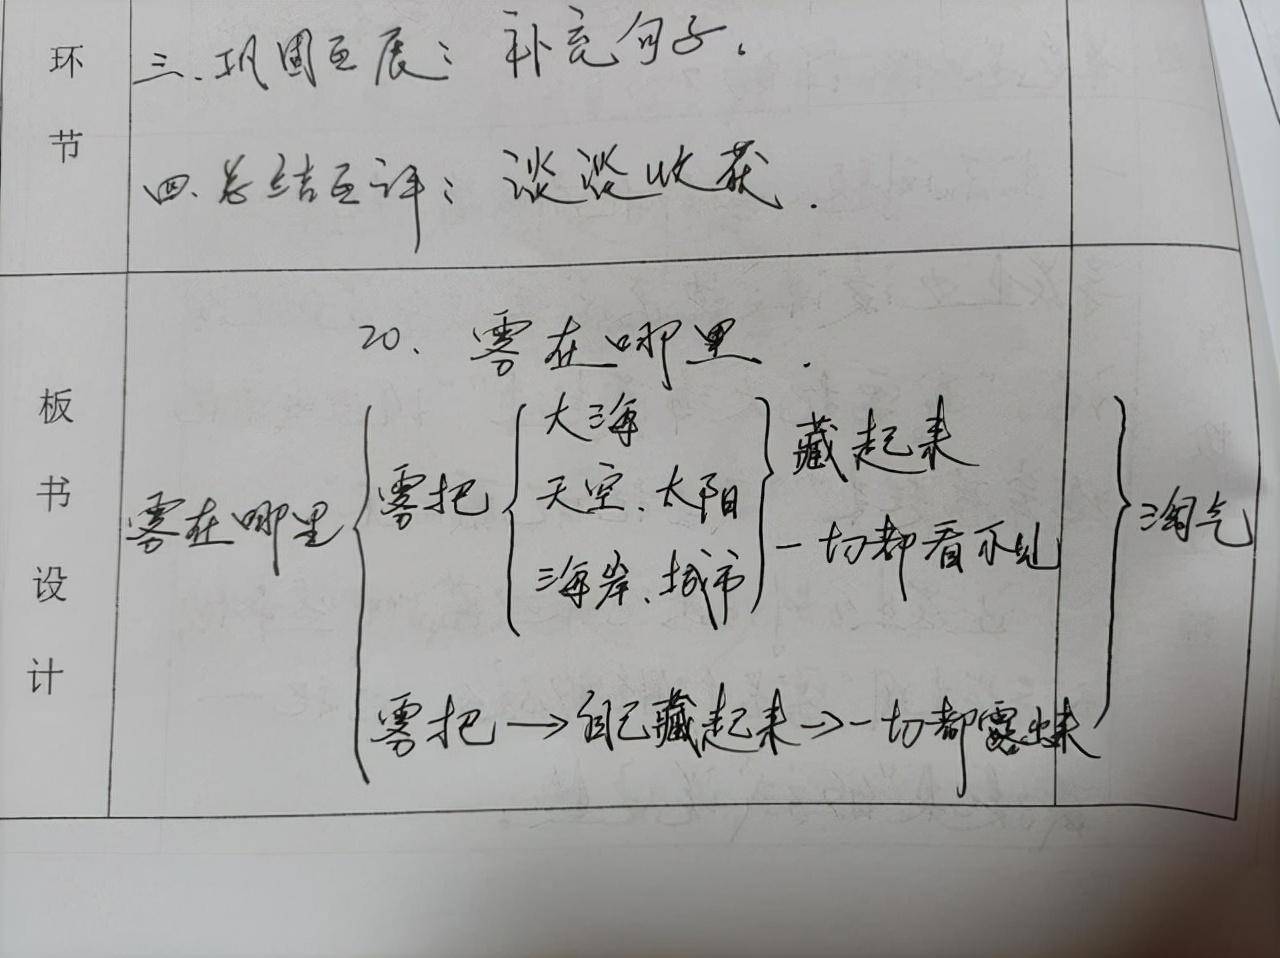 环节
三、巩固互展：补充句子。
四、总结互评：谈谈收获.
板书设计
20、雾在哪里.
雾在哪里
雾把
大海
天空、太阳
海岸、城市
藏起来
一切都看不见
雾把→自己藏起来→一切都露出来
淘气